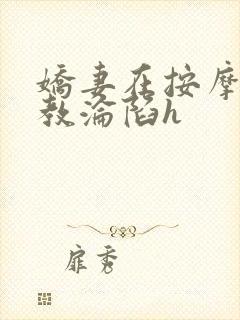 嬌妻在按摩
教淪陷h
扉秀